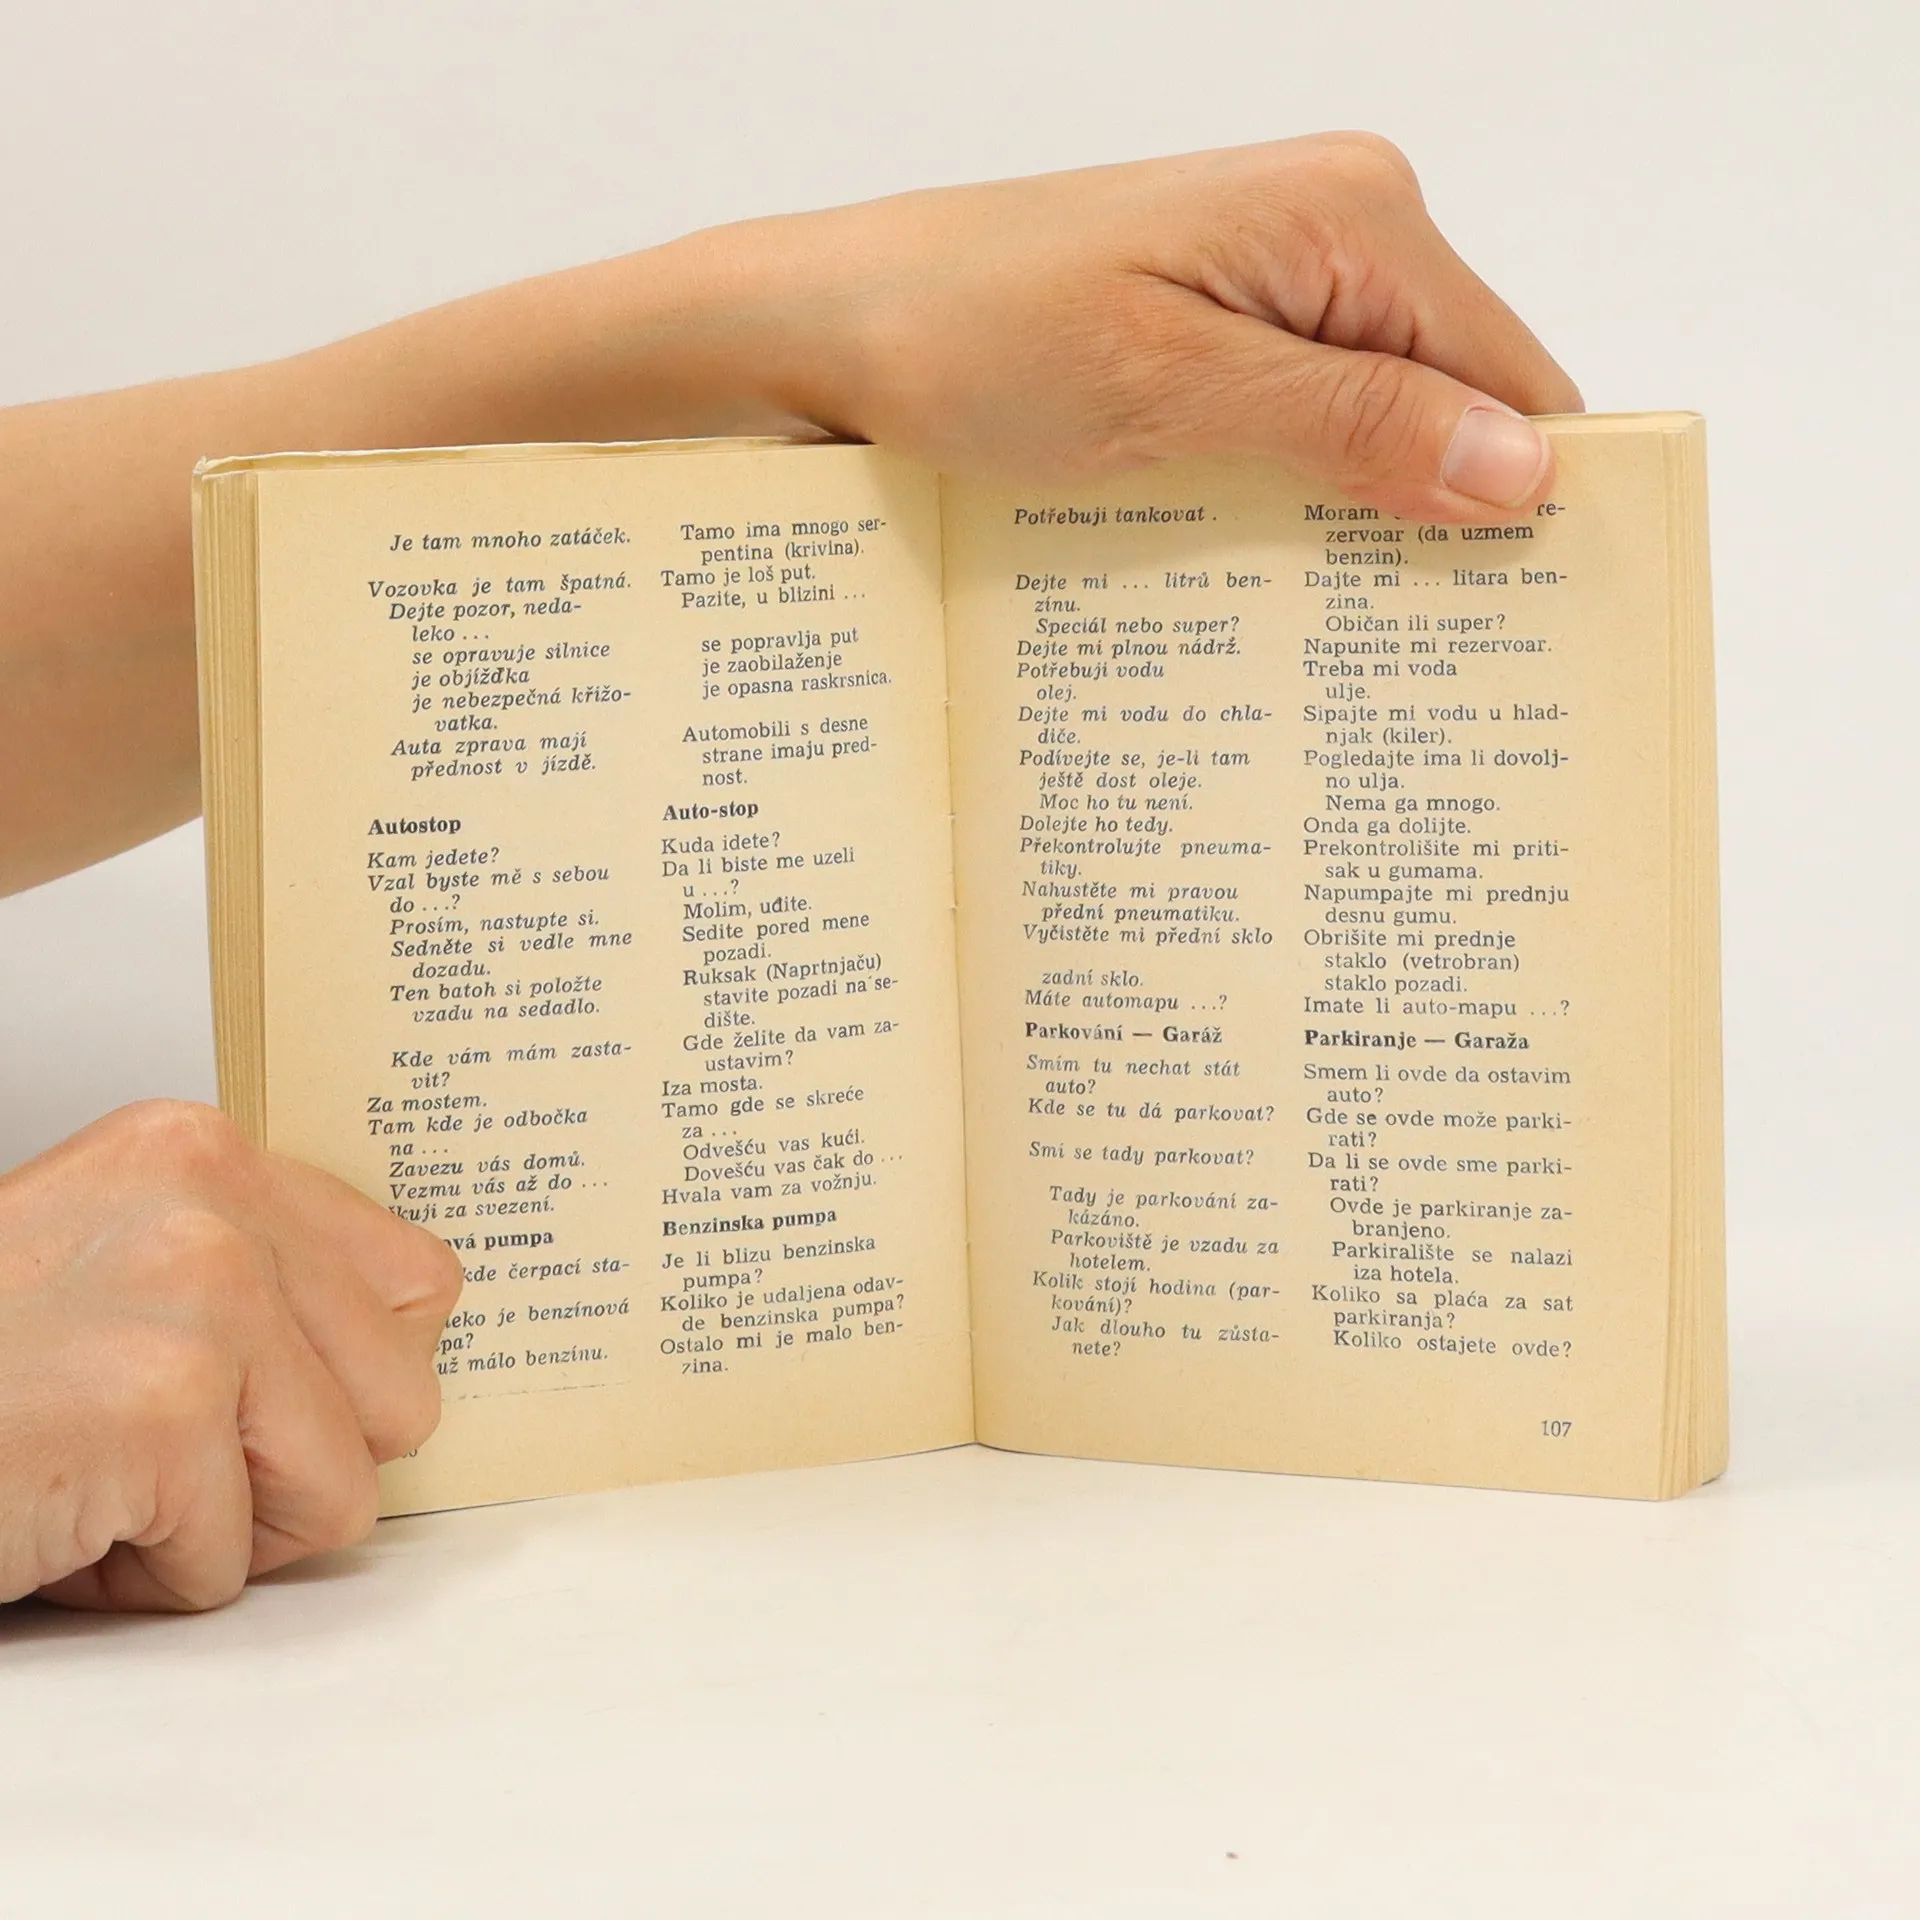 Je tam mnoho zatáček.
Vozovka je tam špatná.
Dejte pozor, neda-
leko ...
se opravuje silnice
je objížďka
je nebezpečná křižo-
vatka.
Auta zprava mají
přednost v jízdě.
Autostop
Kam jedete?
Vzal byste mě s sebou
do ...?
Prosím, nastupte si.
Sedněte si vedle mne
dozadu.
Ten batoh si položte
vzadu na sedadlo.
Kde vám mám zasta-
vit?
Za mostem.
Tam kde je odbočka
na ...
Zavezu vás domů.
Vezmu vás až do ...
za svezení.
pumpa
kde čerpací sta-
je benzínová
už málo benzínu.
Tamo ima mnogo ser-
pentina (krivina).
Tamo je loš put.
Pazite, u blizini ...
se popravlja put
je zaobilaženje
je opasna raskrsnica.
Automobili s desne
strane imaju pred-
nost.
Auto-stop
Kuda idete?
Da li biste me uzeli
u ...?
Molim, uđite.
Sedite pored mene
pozadi.
Ruksak (Naprtnjaču)
stavite pozadi na se-
dište.
Gde želite da vam za-
ustavim?
Iza mosta.
Tamo gde se skreće
za ...
Odvešću vas kući.
Dovešću vas čak do ...
Hvala vam za vožnju.
Benzinska pumpa
Je li blizu benzinska
pumpa?
Koliko je udaljena odav-
de benzinska pumpa?
Ostalo mi je malo ben-
zina.
Potřebuji tankovat.
Dejte mi ... litrů ben-
zínu.
Speciál nebo super?
Dejte mi plnou nádrž.
Potřebuji vodu
olej.
Dejte mi vodu do chla-
diče.
Podívejte se, je-li tam
ještě dost oleje.
Moc ho tu není.
Dolejte ho tedy.
Překontrolujte pneuma-
tiky.
Nahustěte mi pravou
přední pneumatiku.
Vyčistěte mi přední sklo
zadní sklo.
Máte automapu ...?
Parkování — Garáž
Smím tu nechat stát
auto?
Kde se tu dá parkovat?
Smí se tady parkovat?
Tady je parkování za-
kázáno.
Parkoviště je vzadu za
hotelem.
Kolik stojí hodina (par-
kování)?
Jak dlouho tu zůsta-
nete?
Moram re-
zervoar (da uzmem
benzin).
Dajte mi ... litara ben-
zina.
Običan ili super?
Napunite mi rezervoar.
Treba mi voda
ulje.
Sipajte mi vodu u hlad-
njak (kiler).
Pogledajte ima li dovolj-
no ulja.
Nema ga mnogo.
Onda ga dolijte.
Prekontrolišite mi priti-
sak u gumama.
Napumpajte mi prednju
desnu gumu.
Obrišite mi prednje
staklo (vetrobran)
staklo pozadi.
Imate li auto-mapu ...?
Parkiranje — Garaža
Smem li ovde da ostavim
auto?
Gde se ovde može parki-
rati?
Da li se ovde sme parki-
rati?
Ovde je parkiranje za-
branjeno.
Parkiralište se nalazi
iza hotela.
Koliko sa plaća za sat
parkiranja?
Koliko ostajete ovde?
107